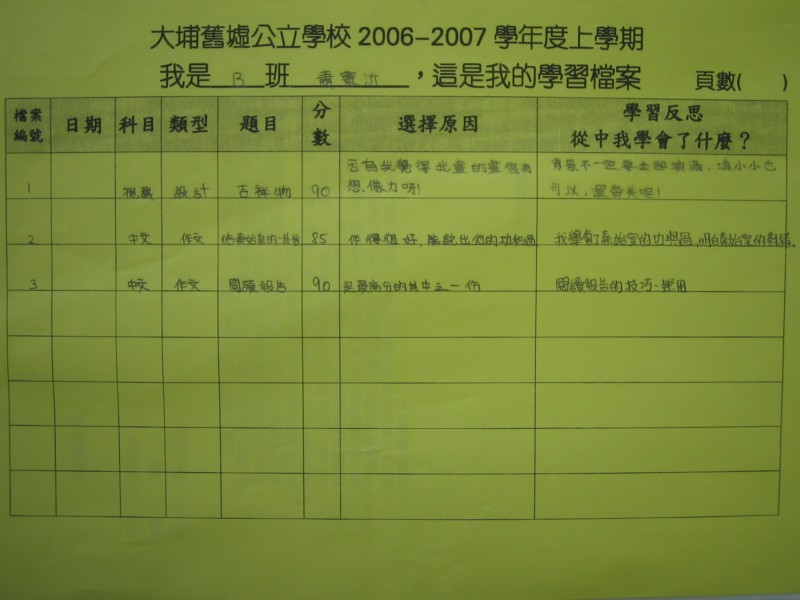 大埔舊墟公立學校 2006–2007 學年度上學期
我是 B 班，這是我的學習檔案 頁數( )
檔案編號 日期 科目 類型 題目 分數 選擇原因 學習反思
從中我學會了什麼？
1 視藝 設計 吉祥物 90 因為我覺得我畫的畫很有
想像力呀!
背景不一定要全部填滿，填小小也
可以，還勁美呢!
2 中文 作文 秦始皇的 85 作得很好，能說出他的功和過 我學會了秦始皇的功與過，明白秦始皇的對錯。
3 中文 作文 閱讀報告 90 是最高分的其中之一份 閱讀報告的技巧、運用